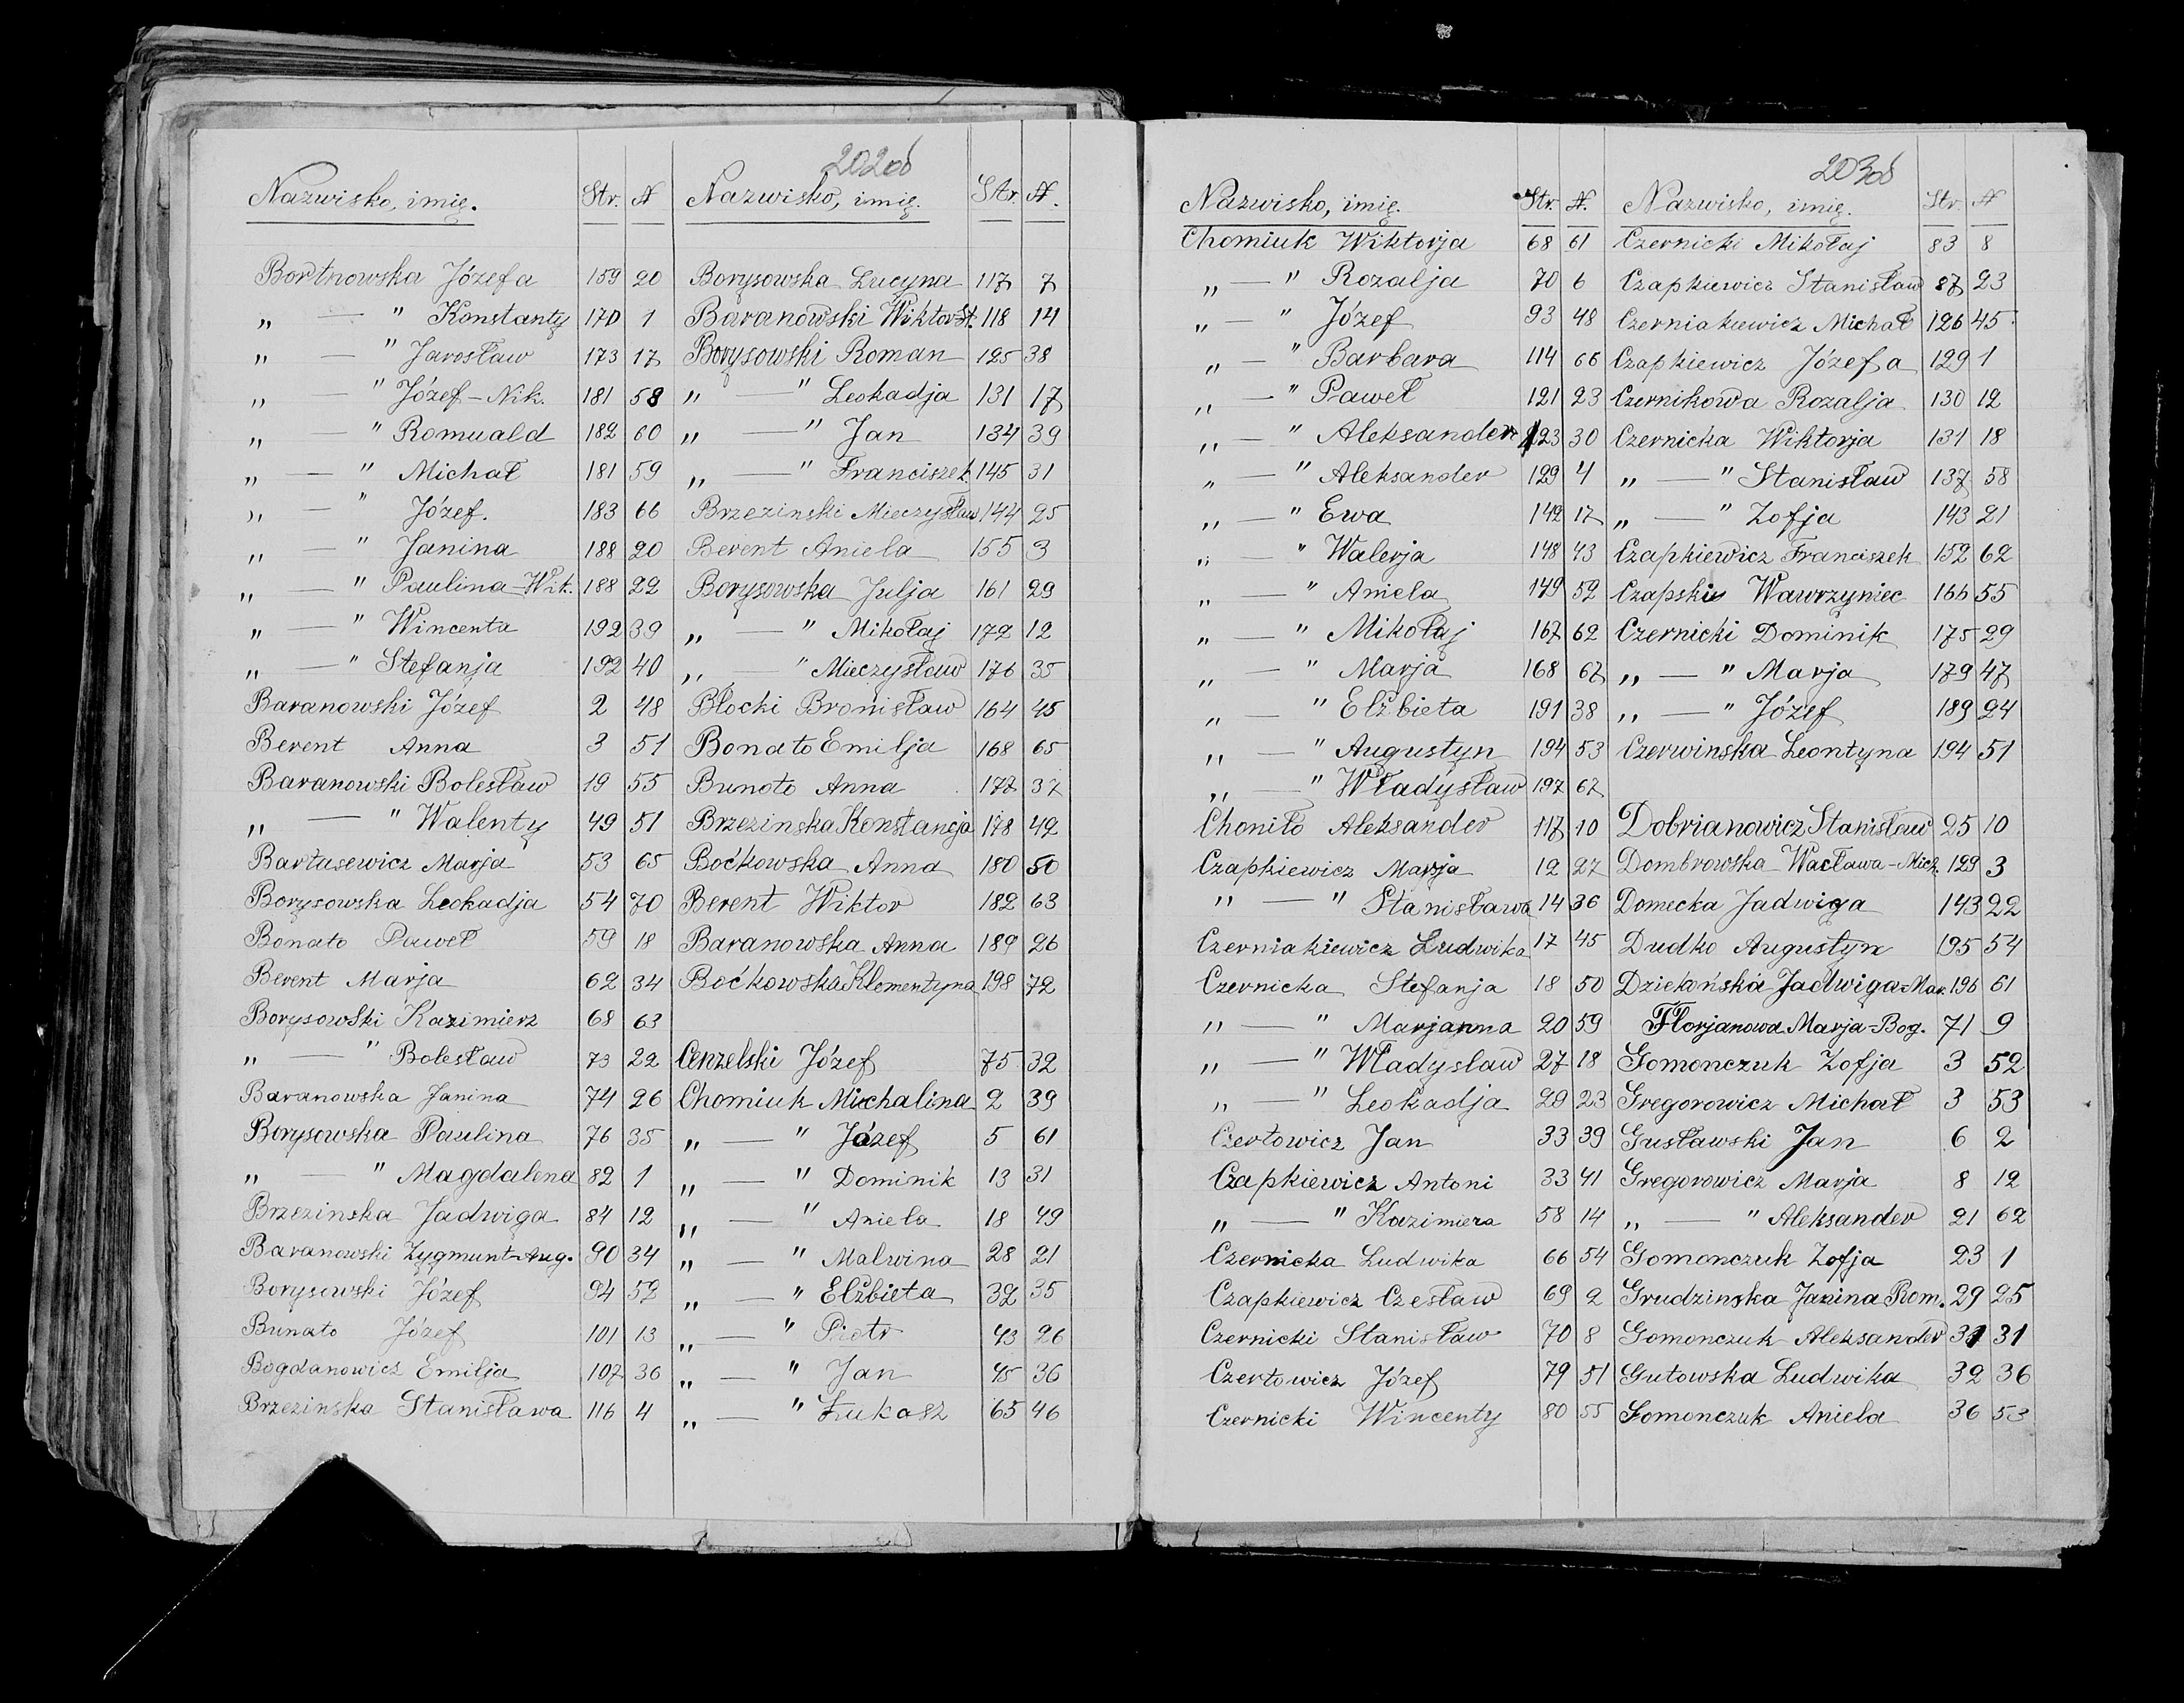 202 об
Nazwisko, imię. Str. №
Bortnowska Józefa 159 20
„ — " Konstanty 170 1
„ — " Jarosław 173 17
„ — " Józef-Nik. 181 58
„ — " Romuald 182 60
„ — " Michał 181 59
„ — " Józef. 183 66
„ — " Janina 188 20
„ — " Paulina-Wik. 188 22
„ — " Wincenta 192 39
„ — " Stefanja 192 40
Baranowski Józef 2 48
Berent Anna 3 51
Baranowski Bolesław 19 55
„ — " Walenty 49 51
Bartusewicz Marja 53 65
Borysowska Leokadja 54 70
Bonato Paweł 59 18
Berent Marja 62 34
Borysowski Kazimierz 68 63
„ — " Bolesław 73 22
Baranowska Janina 74 26
Borysowska Paulina 76 35
„ — " Magdalena 82 1
Brzezinska Jadwiga 84 12
Baranowski Zygmunt-Aug. 90 34
Borysowski Józef 94 52
Bunato Józef 101 13
Bogdanowicz Emilja 107 36
Brzezinska Stanisława 116 4
Nazwisko, imię. Str. №.
Borysowska Lucyna 117 7
Baranowski Wiktor St. 118 14
Borysowski Roman 125 38
„ — " Leokadja 131 17
„ — " Jan 134 39
„ — " Franciszek 145 31
Brzezinski Mieczysław 144 25
Berent Aniela 155 3
Borysowska Julja 161 29
„ — " Mikołaj 172 12
„ — " Mieczysław 176 35
Błocki Bronisław 164 45
Bonato Emilja 168 65
Bunoto Anna 177 37
Brzezinska Konstancja 178 42
Boćkowska Anna 180 50
Berent Wiktor 182 63
Baranowska Anna 189 26
Boćkowska Klementyna 198 72
Cenzelski Józef 75 32
Chomiuk Michalina 2 39
„ — " Józef 5 61
„ — " Dominik 13 31
„ — " Aniela 18 49
„ — " Malwina 28 21
„ — " Elżbieta 32 35
„ — " Piotr 43 26
„ — " Jan 45 36
„ — " Łukasz 65 46
203 об
Nazwisko, imię. Str. №.
Chomiuk Wiktorja 68 61
„ — " Rozalja 70 6
„ — " Józef 93 48
„ — " Barbara 114 66
„ — " Paweł 121 23
„ — " Aleksander 123 30
„ — " Aleksander 129 4
„ — " Ewa 142 17
„ — " Walerja 148 43
„ — " Aniela 149 52
„ — " Mikołaj 167 62
„ — " Marja 168 67
„ — " Elżbieta 191 38
„ — " Augustyn 194 53
„ — " Władysław 197 67
Choniło Aleksander 117 10
Czapkiewicz Marja 12 27
" — " Stanisława 14 36
Czerniakiewicz Ludwika 17 45
Czernicka Stefanja 18 50
" — " Marjanna 20 59
" — " Władysław 27 18
" — " Leokadja 29 23
Czertowicz Jan 33 39
Czapkiewicz Antoni 33 41
„ — " Kazimiera 58 14
Czernicka Ludwika 66 54
Czapkiewicz Czesław 69 2
Czernicki Stanisław 70 8
Czertowicz Józef 79 51
Czernicki Wincenty 80 55
Nazwisko, imię. Str. №
Czernicki Mikołaj 83 8
Czapkiewicz Stanisław 87 23
Czerniakiewicz Michał 126 45
Czapkiewicz Józefa 129 1
Czernikowa Rozalja 130 12
Czernicka Wiktorja 131 18
„ — " Stanisław 137 58
„ — " Zofja 143 21
Czapkiewicz Franciszek 152 62
Czapski Wawrzyniec 166 55
Czernicki Dominik 175 29
„ — " Marja 179 47
„ — " Józef 189 24
Czerwinska Leontyna 194 51
Dobrianowicz Stanisław 25 10
Dombrowska Wacława-Mich. 129 3
Domecka Jadwiga 143 22
Dudko Augustyn 195 54
Dziekońska Jadwiga-Mar. 196 61
Florjanowa Marja-Bog. 71 9
Gomonczuk Zofja 3 52
Gregorowicz Michał 3 53
Gusławski Jan 6 2
Gregorowicz Marja 8 12
„ — " Aleksander 21 62
Gomonczuk Zofja 23 1
Grudzinska Janina Rom. 29 25
Gomonczuk Aleksander 31 31
Gutowska Ludwika 32 36
Gomonczuk Aniela 36 53